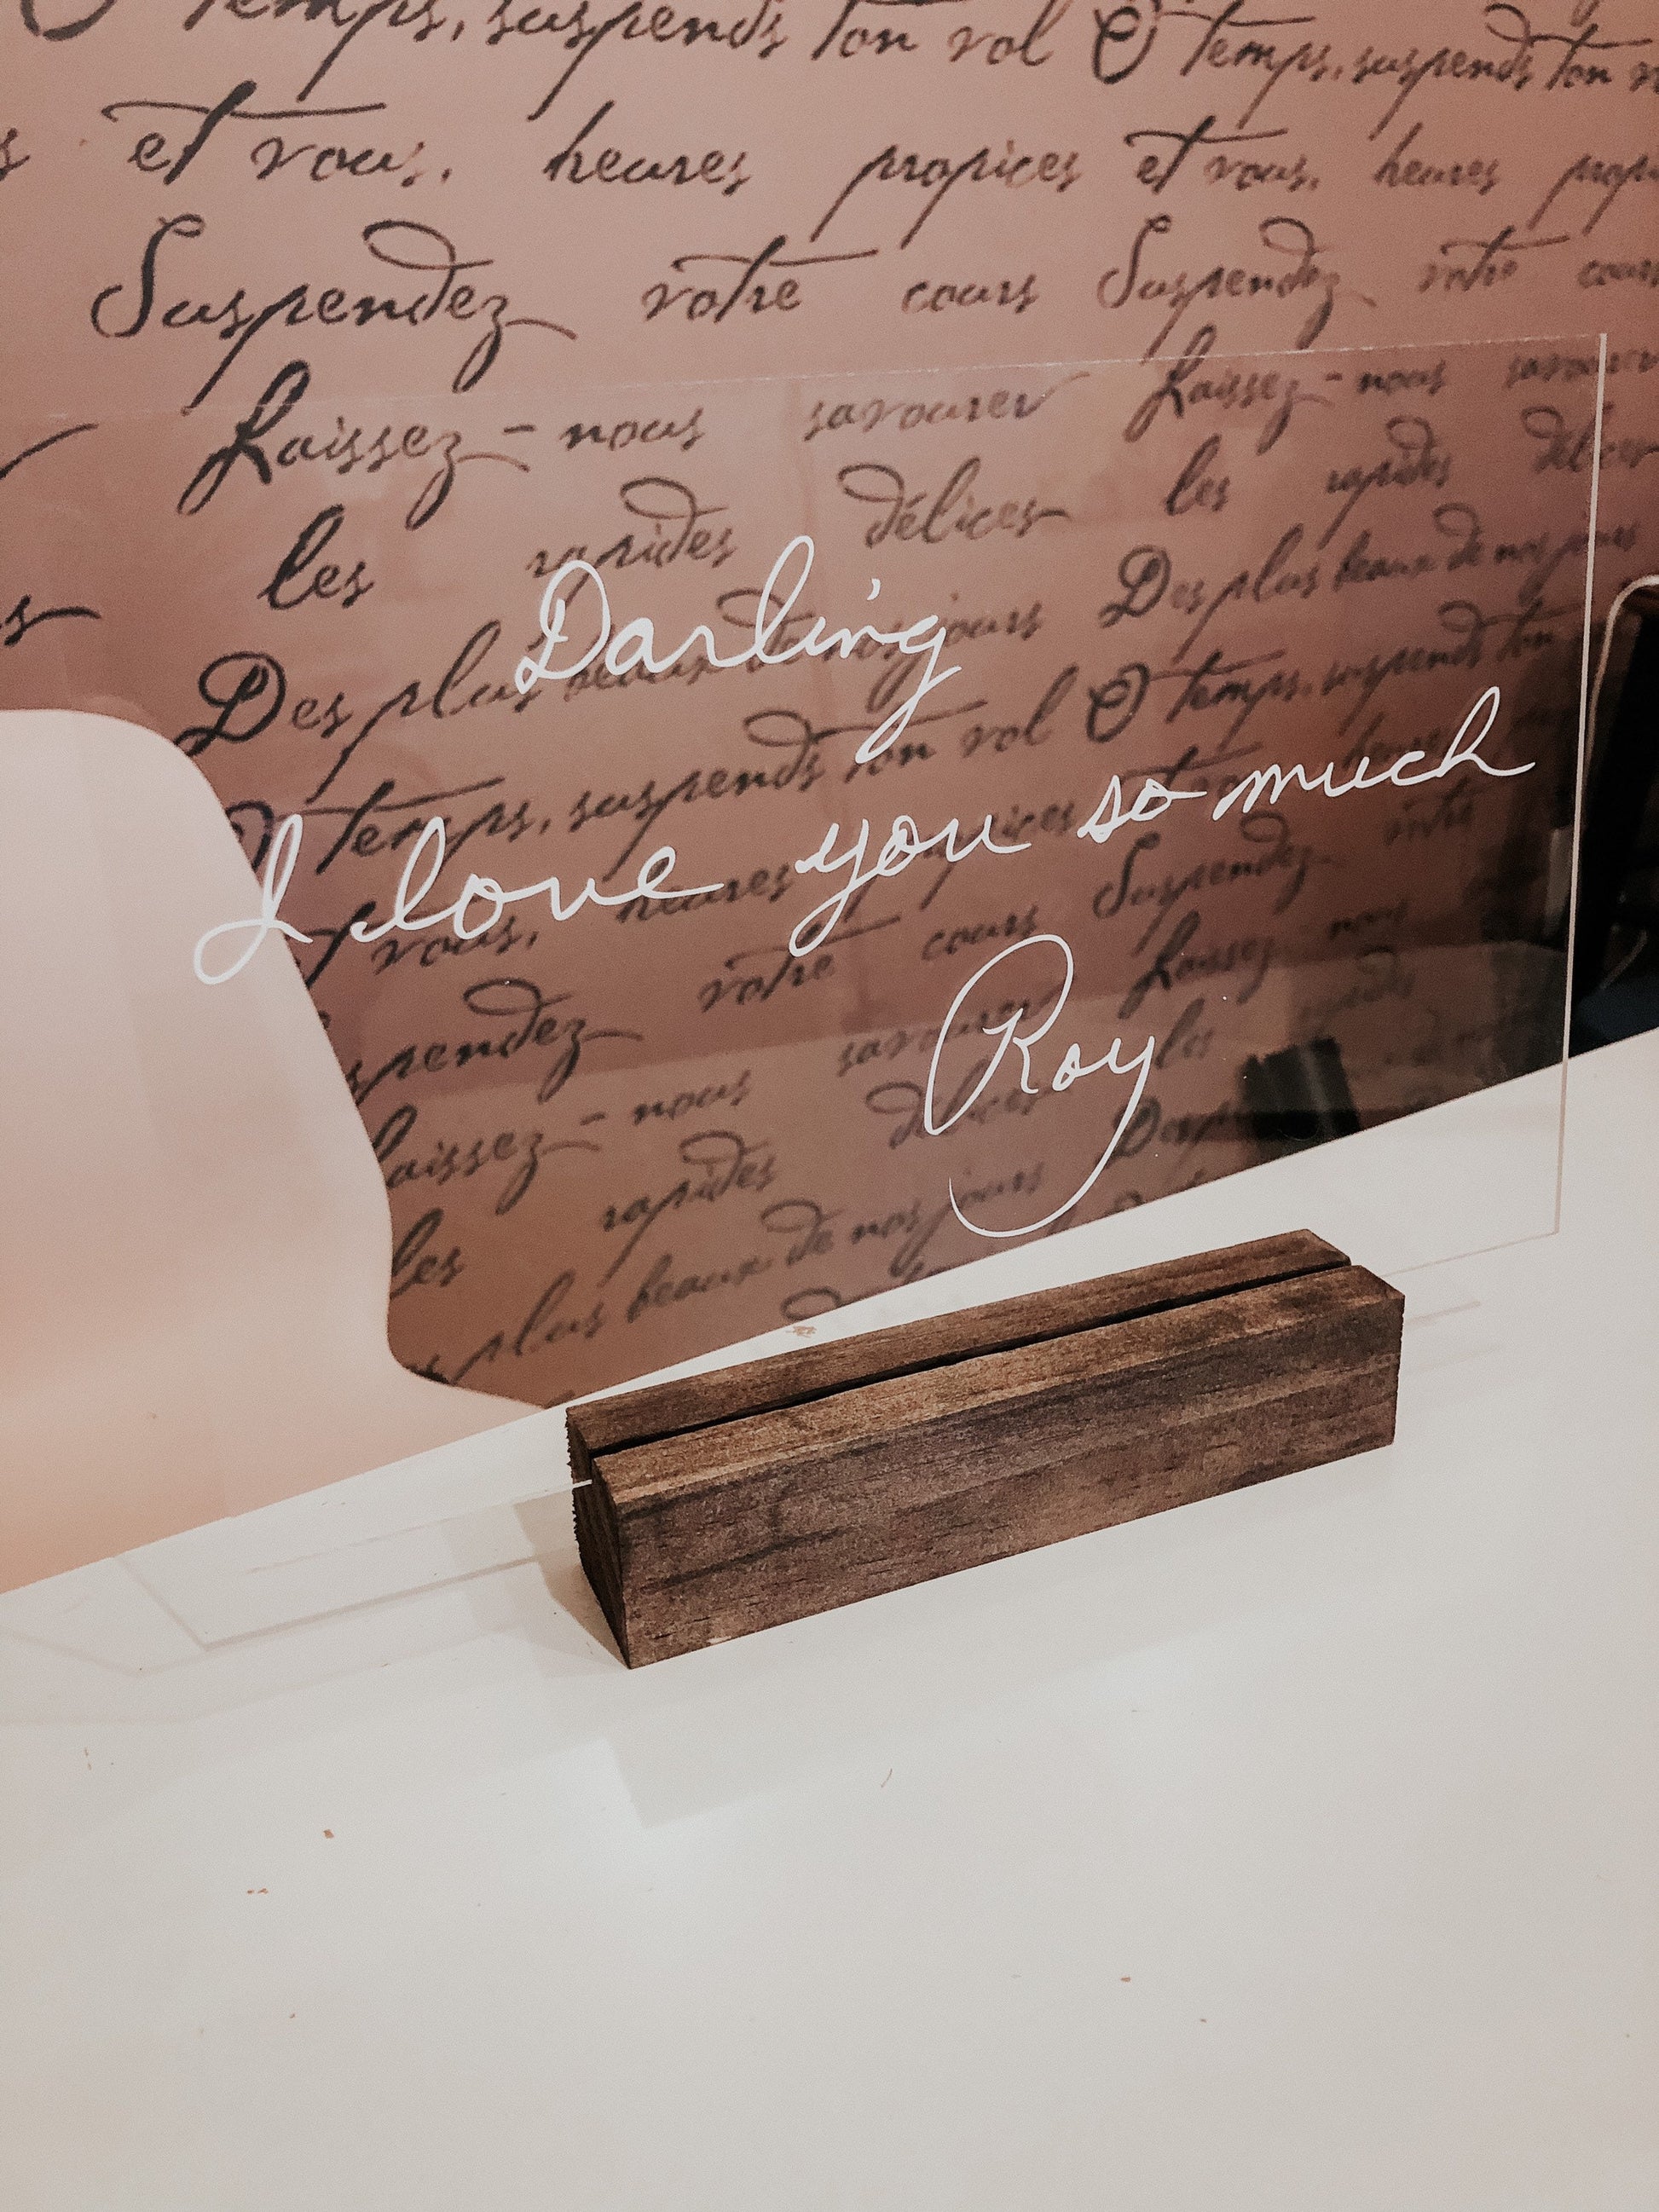 Temps, suspends ton vol O temps, suspends ton
et vous, heures propices et vous, heures
Suspendez votre cours Suspendez votre cours
Laissez-nous savourer Laissez-nous savourer
les rapides délices les rapides délices
Des plus beaux de nos jours Des plus beaux de nos jours
O temps, suspends ton vol O temps, suspends ton
vous, heures propices
votre cours Suspendez votre
laissez-nous savourer Laissez-nous
les rapides délices les rapides
plus beaux de nos jours Des plus
Darling
I love you so much
Roy